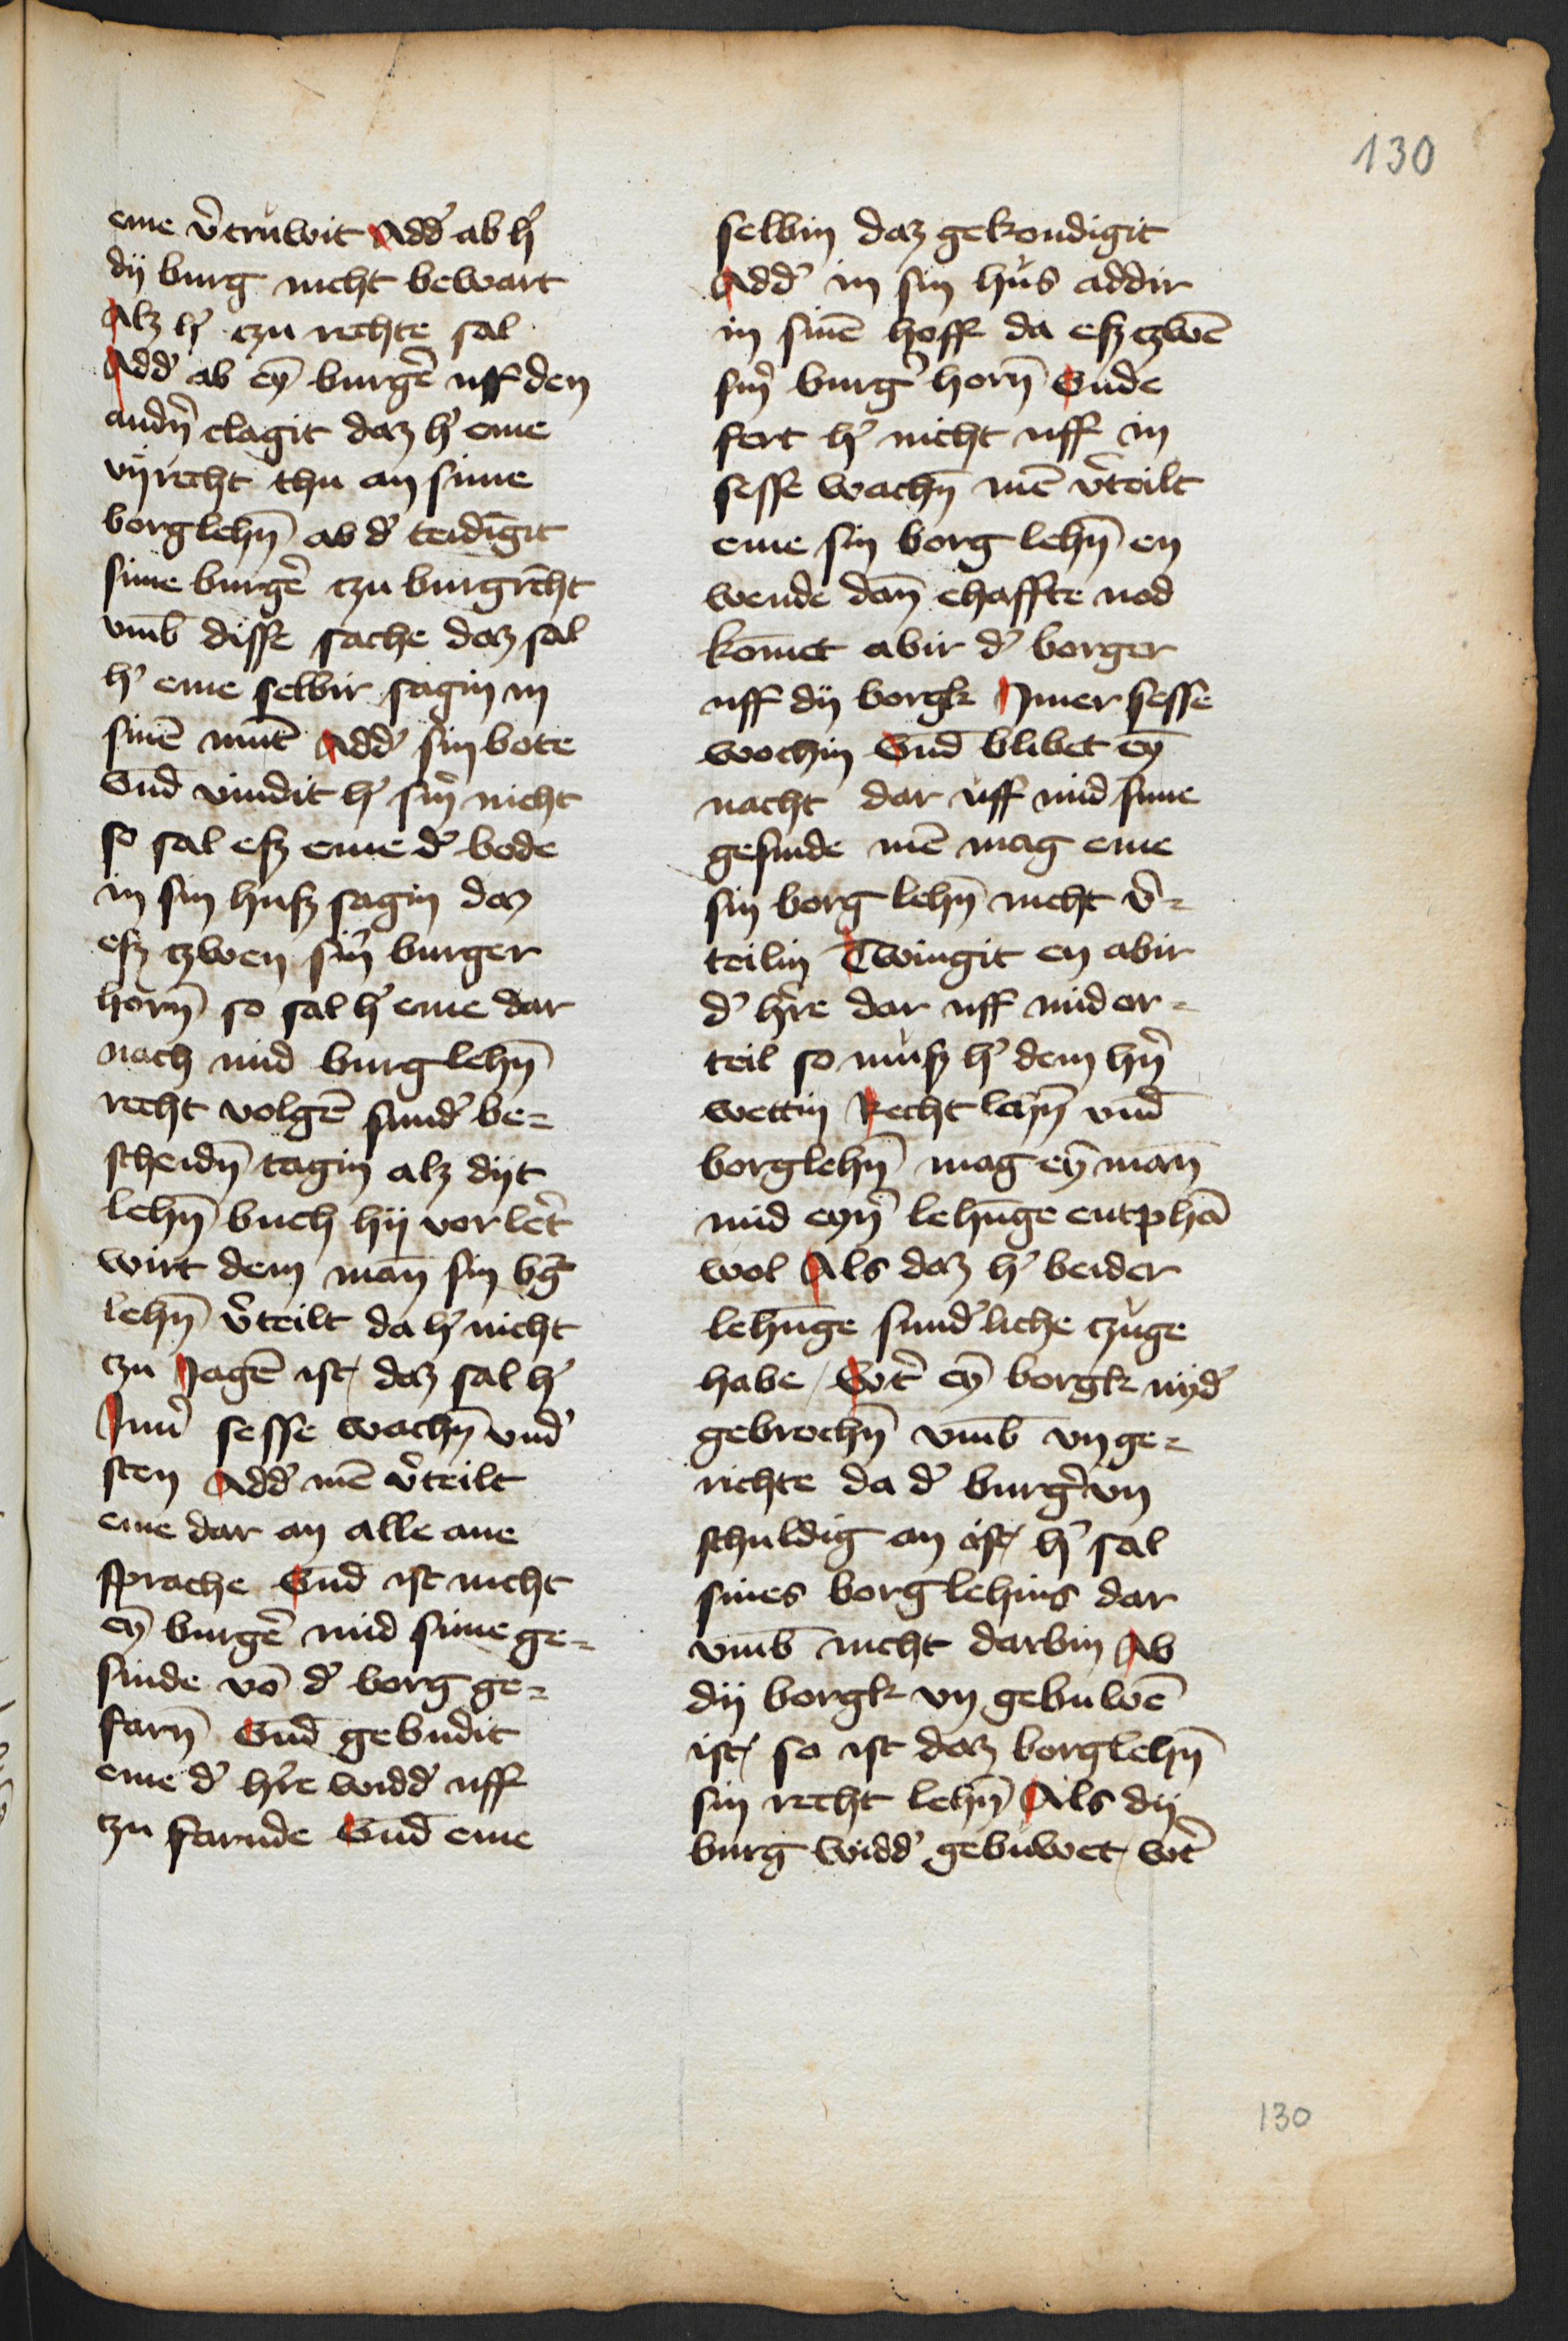 130
eme v̾truwit Add̾ ab h̾
dij burg nicht bewart
Alz h̾ czu rechte sal
Add̾ ab eȳ burgē uff den
andn̄ clagit daz h̾ eme
vnrecht thu an sime
borglehn̄ ab d̾ teidīgit
sime burgē czu burgrēcht
vmb̄ disse sache daz sal
h̾ eme selbir sagin in
sinē munt̄ Add̾ sin bote
Vnd̄ vindit h̾ sin̾ nicht
so sal esz eme d̾ bode
in sin husz sagin daz
esz czwen sin̾ burger
horn̄ so sal h̾ eme dar
nach mid burglehn̄
recht volgē sund̾ be=
scheidn̄ tagin alz dijt
lehn̄ buch hij vor let̾
wirt dem man̄ sin bg̾
lehn̄ v̾teilt da h̾ nicht
czu Jagē ist daz sal h̾
Jnn̾ sesse wachn̄ vnd̾
sten Add̾ mē v̾teilt
eme dar an alle ane
sprache Vnd̄ ist nicht
eȳ burgē mid sime ge=
sinde vō d̾ borg ge=
farn̄ Vnd̄ gebudit
eme d̾ h̾re widd̾ uff
czu farnde Vnd̄ eme
selbin daz gekondigit
Add̾ in sin hus addir
in sinē hoff da esz czwē
sin̾ burg̾ horn̄ Vnde
fert h̾ nicht uff in
sesse wachn̄ mē v̾teilt
eme sin borg lehn̄ en
wende dan̄ ehaffte nod
kom̄et abir d̾ borger
uff dij borgk Jnner sesse
wochin Vnd̄ blibet eȳ
nacht dar uff mid sime
gesinde mē mag eme
sin borg lehn̄ nicht v̾=
teilin Twingit en abir
d̾ h̾re dar uff mid or=
teil so musz h̾ dem hn̾
wettin Recht lehn̄ vnd̄
borglehn̄ mag eȳ man̄
mid eyn̾ lehnūge entphā
wol Als daz h̾ beider
lehnūge sund̾liche czuge
habe / Wt̾ eȳ borgk nyd̾
gebrochn̄ vmb̄ vn ge=
richte da d̾ burg̾ vn
schuldig an ist h̾ sal
sines borglehins dar
vmb̄ nicht darbin Ab
dij borgk vn gebuwē
ist so ist daz borglehn̄
sin recht lehn̄ Als dij
burg widd̾ gebuwet wt̾
130